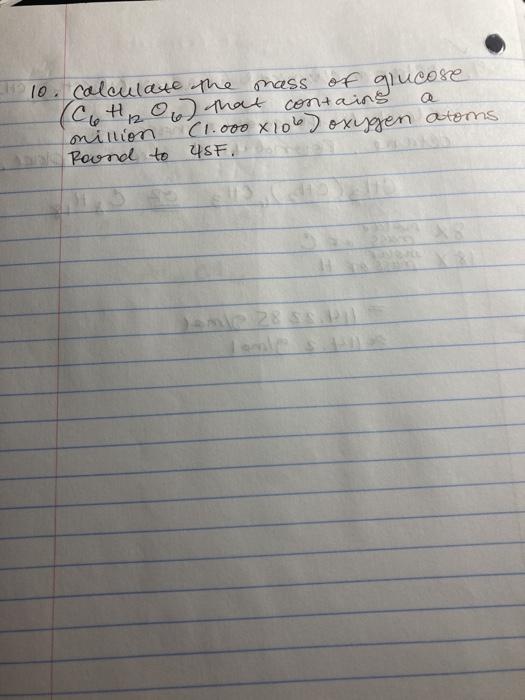 10. Calculate the mass of glucose
(C6 H12 O6) that contains a
million (1.000 x 10^6) oxygen atoms
Round to 4SF.